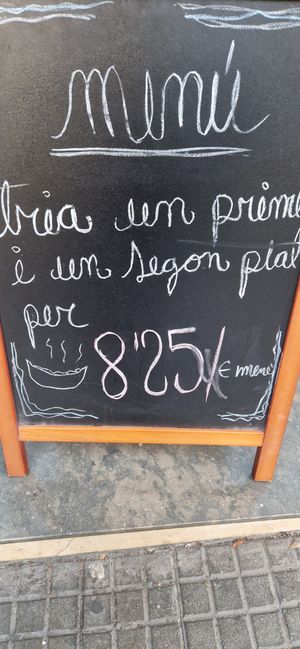 menú
tria un prime
i un segon plat
per
8'25/€ menú